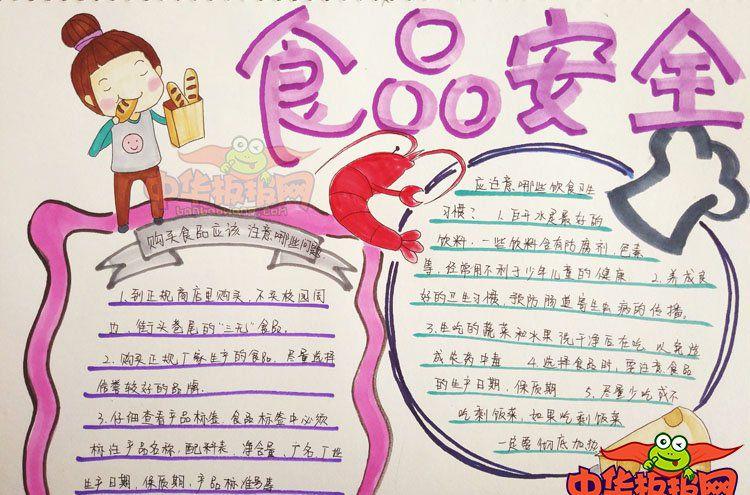 食品安全
购买食品应该注意哪些问题
1.到正规商店里购买，不买校园周
边、街头巷尾的"三无"食品。
2.购买正规厂家生产的食品，尽量选择
信誉较好的品牌。
3.仔细查看产品标签。食品标签中必须
标注产品名称，配料表，净含量，厂名，厂址
生产日期，保质期，产品标准号等
应注意哪些饮食卫生
习惯？ 1.白开水是最好的
饮料，一些饮料含有防腐剂，色素
等，经常用不利于少年儿童的健康 2.养成良
好的卫生习惯，预防肠道寄生虫病的传播。
3.生吃的蔬菜和水果洗干净后在吃，以免造
成农药中毒 4.选择食品时，要注意食品
的生产日期，保质期 5.尽量少吃或不
吃剩饭菜，如果吃剩饭菜
一定要彻底加热
中华板报网
中华板报网